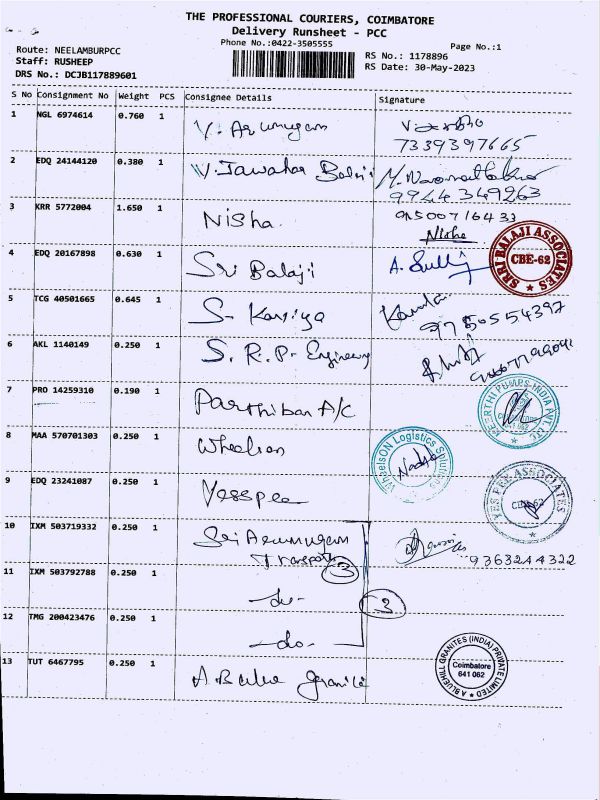 THE PROFESSIONAL COURIERS, COIMBATORE
Delivery Runsheet - PCC
Phone No.:0422-3505555
Page No.:1
Route: NEELAMBURPCC
Staff: RUSHEEP
DRS No.: DCJB117889601
RS No.: 1178896
RS Date: 30-May-2023
S No Consignment No Weight PCS Consignee Details Signature
1 NGL 6974614 0.760 1 V. Arumugam
7339397665
2 EDQ 24144120 0.380 1 V. Jawahar Balaji
9944349263
3 KRR 5772004 1.650 1 Nisha
Nisha
4 EDQ 20167898 0.630 1 Sri Balaji A.
SRRI BALAJI ASSOCIATES
CBE-62
5 TCG 40501665 0.645 1 S.
6 AKL 1140149 0.250 1 S. R. P. Engineering
7 PRO 14259310 0.190 1 Parthiban A/C
KEERTHI PUMPS INDIA PVT. LTD.
8 MAA 570701303 0.250 1 Wheelson
WheelsON Logistics Solutions
9 EDQ 23241087 0.250 1 Yesspee
YES PEE ASSOCIATES
CBE-62
10 IXM 503719332 0.250 1 Sri Arumugam
Transport
3
9363244322
11 IXM 503792788 0.250 1 -do-
3
12 TMG 200423476 0.250 1 -do-
13 TUT 6467795 0.250 1 A Granite
A BLUEHILL GRANITES (INDIA) PRIVATE LIMITED
Coimbatore
641 062